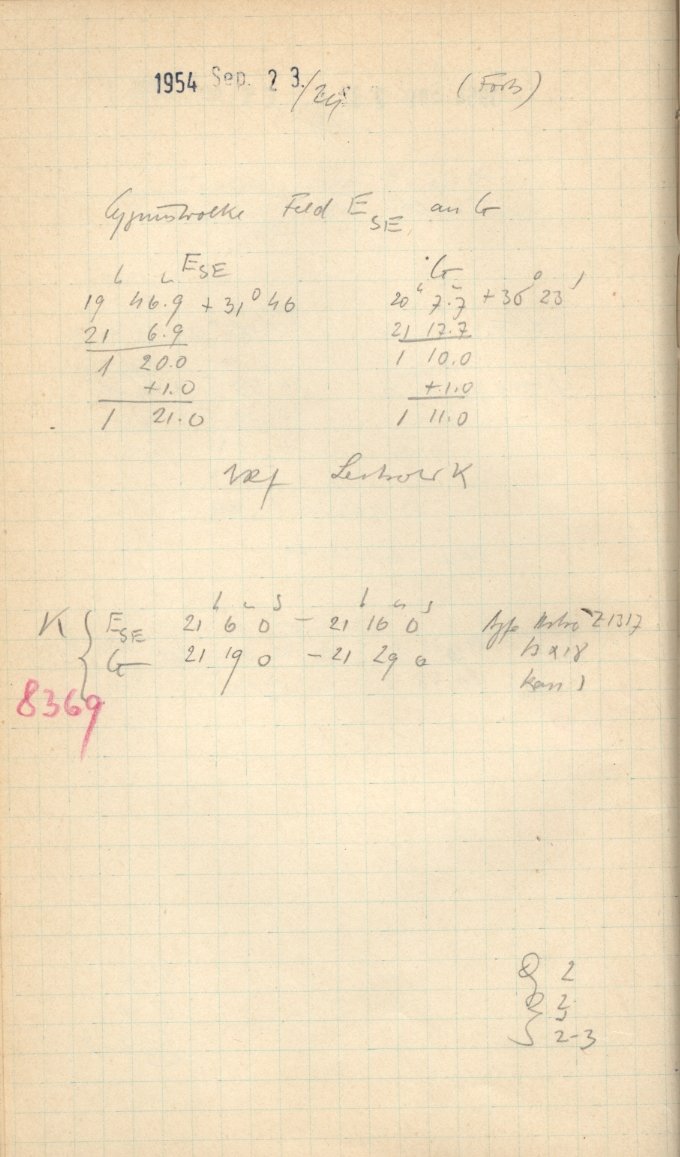 1954 Sep. 23./24. (Forts)
Cygnuswolke Feld E SE an G
h m E SE
19 46.9 + 31° 46
21 6.9
1 20.0
+1.0
1 21.0
G
h m
20 7.7 + 35° 23'
21 17.7
1 10.0
+1.0
1 11.0
h m s h m s
K { E SE 21 6 0 – 21 16 0
G 21 19 0 – 21 29 0
Agfa Astro Z1317
13 x 18
Kass
8369
2
2
2-3